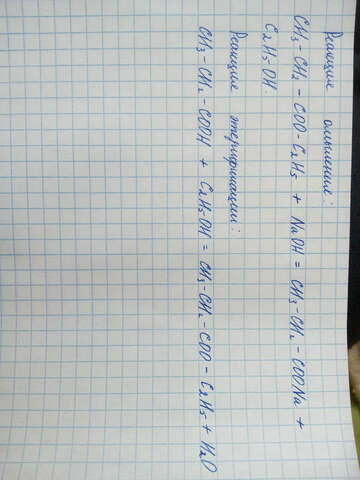 Реакция омыления:
CH3-CH2-COO-C2H5 + NaOH = CH3-CH2-COONa +
C2H5OH.
Реакция этерификации:
CH3-CH2-COOH + C2H5-OH = CH3-CH2-COO-C2H5 + H2O